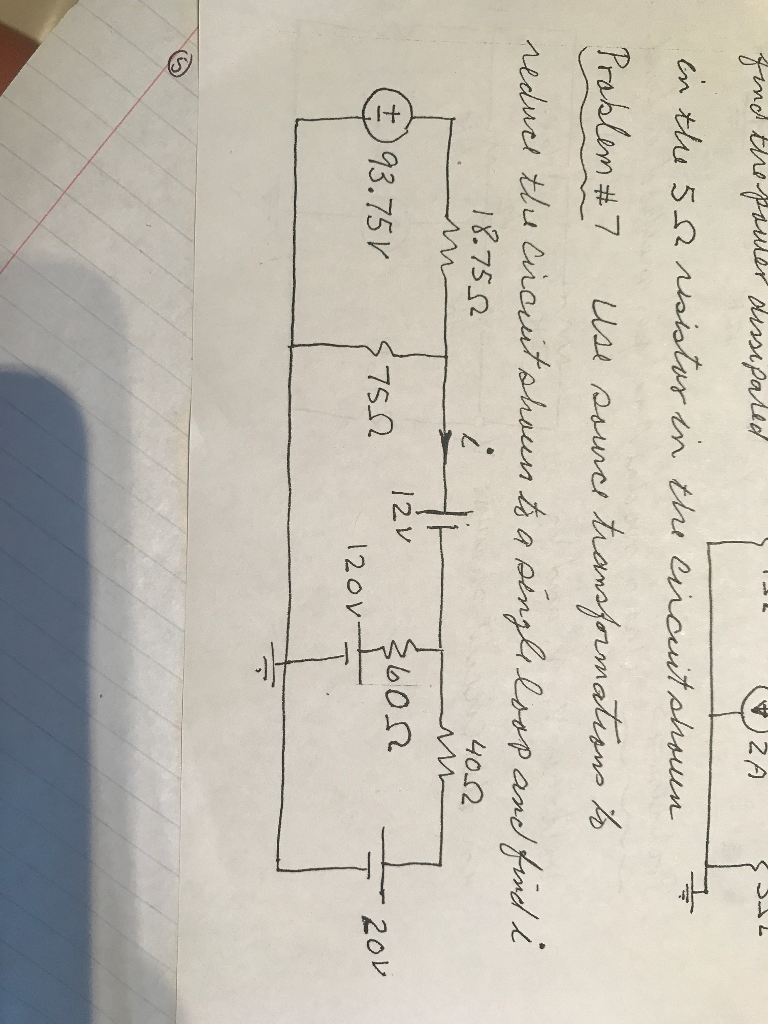 find the power dissipated
in the 5Ω resistor in the circuit shown
2A
5Ω
Problem #7 Use source transformations to
reduce the circuit shown to a single loop and find i
18.75Ω
i
40Ω
93.75V
75Ω
12V
60Ω
120V
20V
5